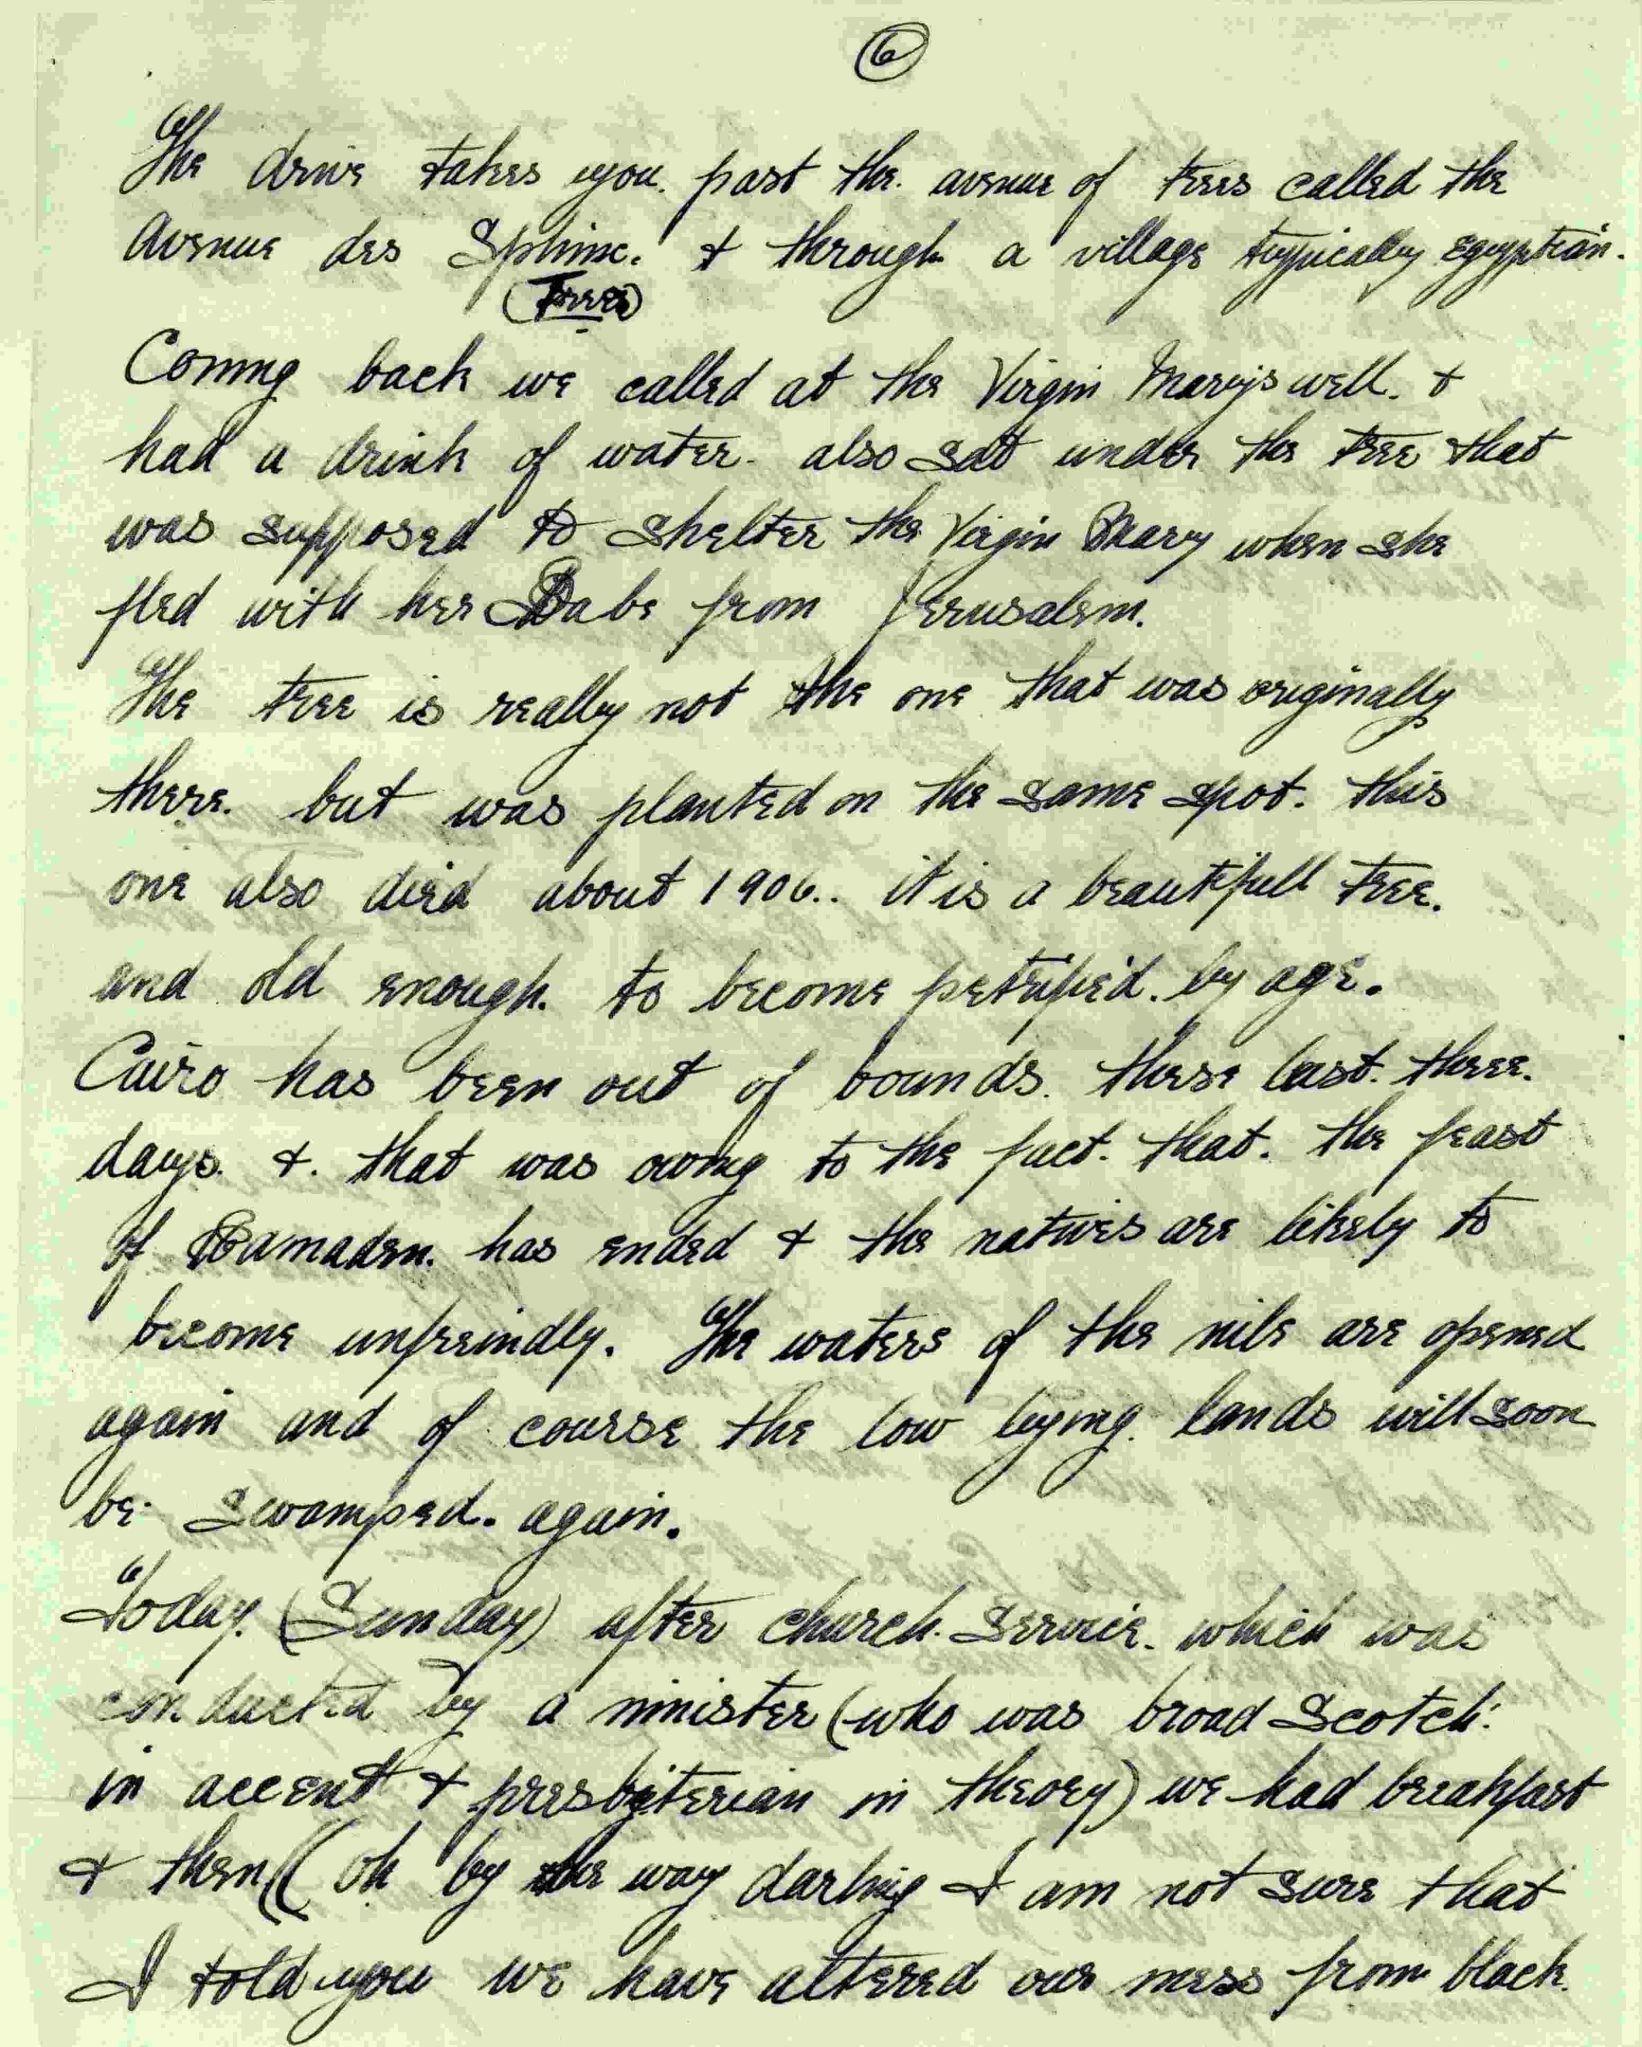 6
The drive takes you. past the. avenue of trees called the
Avenue des Sphinx. & through a village typically Egyptian.
(Trees)
Coming back we called at the Virgin Mary's well. &
had a drink of water. also sat under the tree that
was supposed to shelter the Virgin Mary when she
fled with her Babe from Jerusalem.
The tree is really not the one that was originally
there. but was planted on the same spot. this
one also died about 1906.. it is a beautifull tree.
and old enough. to become petrified. by age.
Cairo has been out of bounds. these last. three.
days. &. that was owing to the fact. that. the feast
of Ramaden. has ended & the natives are likely to
become unfreindly. The waters of the nile are opened
again and of course the low lying. lands will soon
be swamped. again.
Today. (Sunday) after church. service. which was
conducted by a minister (who was broad Scotch.
in accent & presbyterian in theory) we had breakfast
& then ((oh by the way darling I am not sure that
I told you we have altered our mess from black.